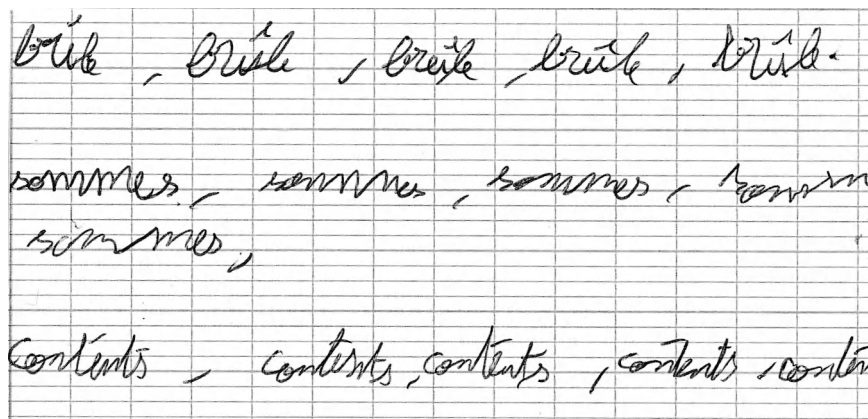 brûle, brûle, brûle, brûle, brûle.
sommes, sommes, sommes, somm
sommes,
contents, contents, contents, contents, conten